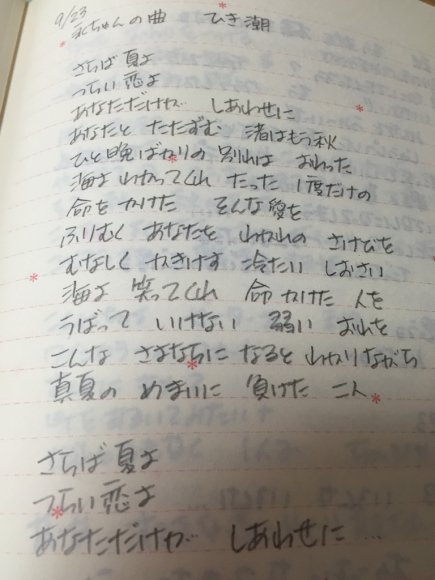 9/23
永ちゃんの曲 ひき潮
さらば夏よ
つらい恋よ
あなただけが しあわせに
あなたと たたずむ 渚はもう秋
ひと晩ばかりの 別れは おわった
海よ わかってくれ たった 1度だけの
命をかけた そんな愛を
ふりむく あなたを わかれの さけびを
むなしく かきけす 冷たい しおさい
海よ 笑ってくれ 命かけた 人を
うばって いけない 弱い おれを
こんな さよならに なると わかりながら
真夏の めまいに 負けた 二人
さらば夏よ
つらい恋よ
あなただけが しあわせに…